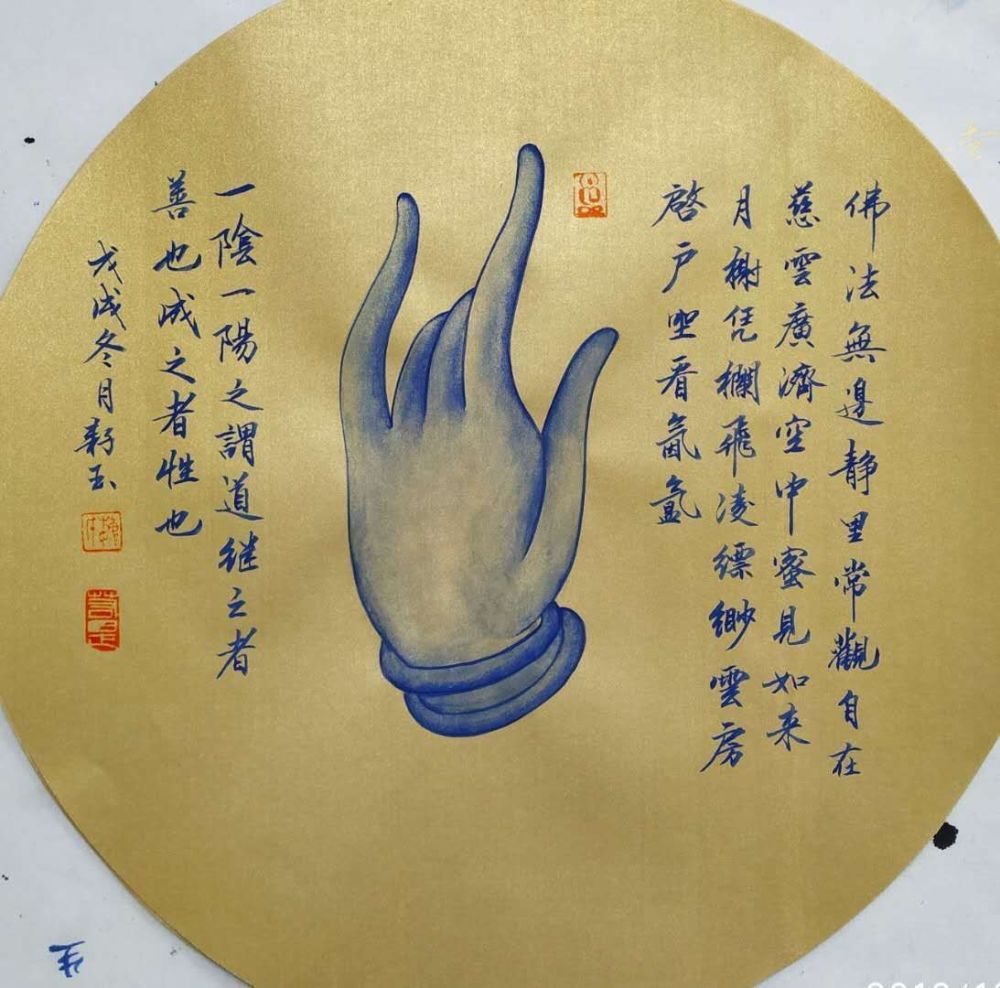 佛法無邊静里常觀自在
慈雲廣濟空中蜜見如来
月榭凭欄飛凌縹緲雲房
啓戶坐看氤氲
一陰一陽之謂道继之者
善也成之者性也
戊戌冬月